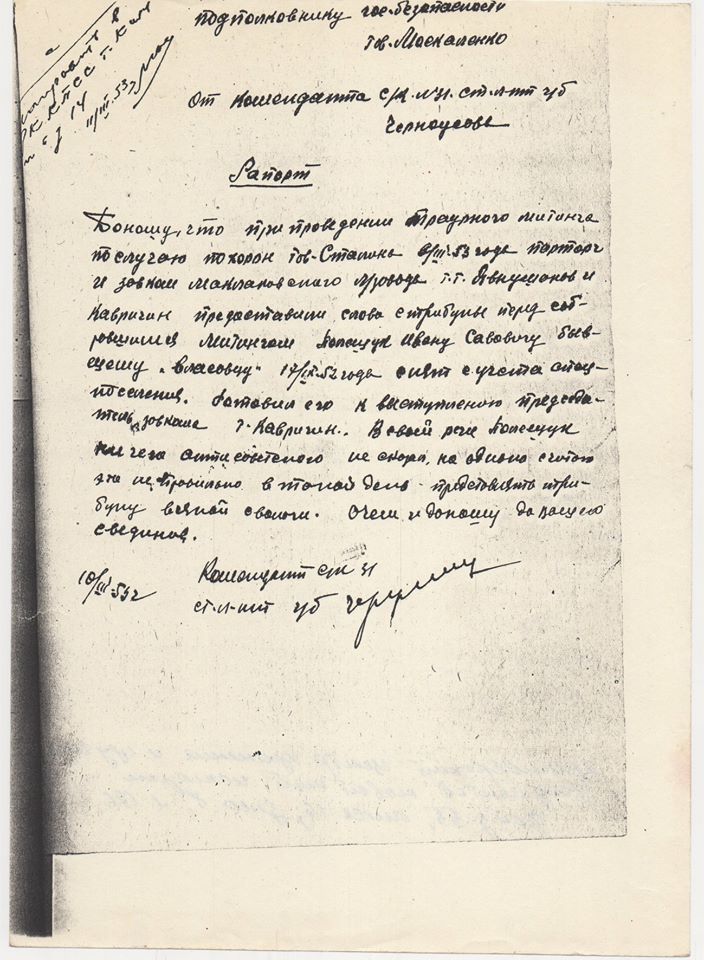 подполковнику гос. безопасности
тов. Москаленко
От коменданта с/к №31 ст. л-нт гб
Черноусова
КПСС
11/III.53г
Рапорт
Доношу, что при проведении траурного митинга
по случаю похорон тов. Сталина 9/III-53 года парторг
и завком Маклаковского л/завода т.т. Евкушонков и
Кавригин предоставили слова с трибуны перед соб-
равшимся митингом Полещук Ивану Савовичу быв-
шему "власовцу" 17/IX-52 года снят с учета спец-
поселения. Готовил его к выступлению председа-
тель завкома т. Кавригин. В своей речи Полещук
ни чего антисоветского не сказал, но однако считаю
это не правильно в такой день предоставлять три-
буну всякой сволочи. О чем и доношу до вашего
сведения.
10/III-53г
Комендант с/к 31
ст. л-нт гб